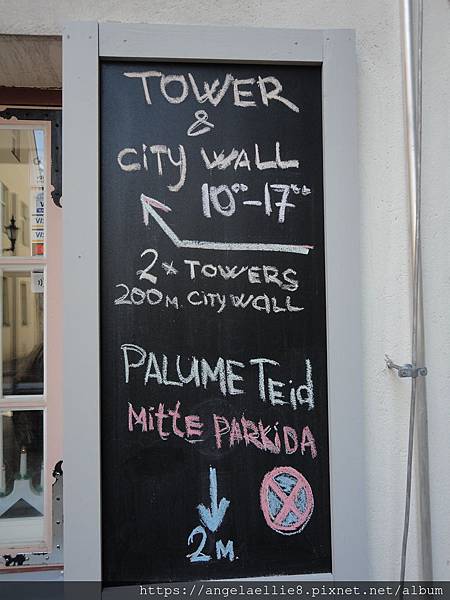 TOWER
&
CITY WALL
10⁰⁰-17⁰⁰
2x TOWERS
200M. CITY WALL
PALUME TEID
MITTE PARKIDA
2M.
https://angelaellie8.pixnet.net/album